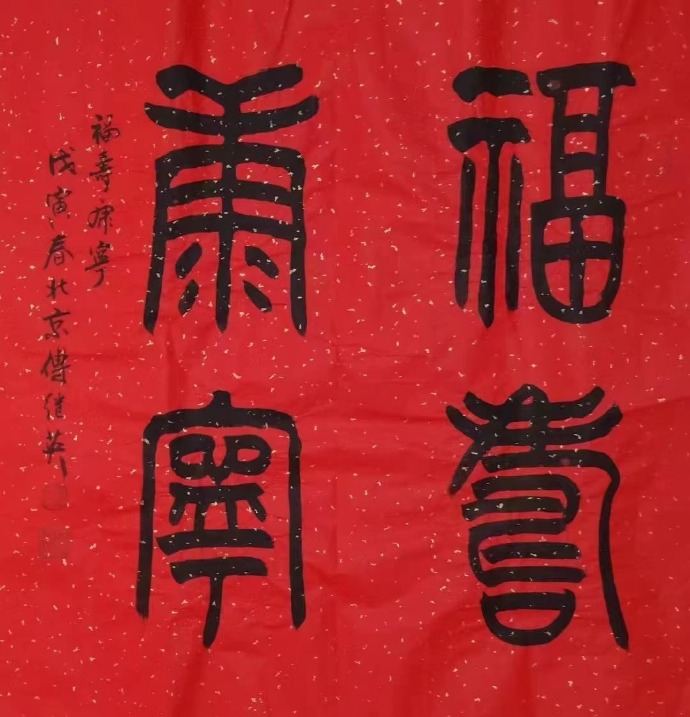 福壽
康寧
福壽康寧
戊寅春北京傅继英